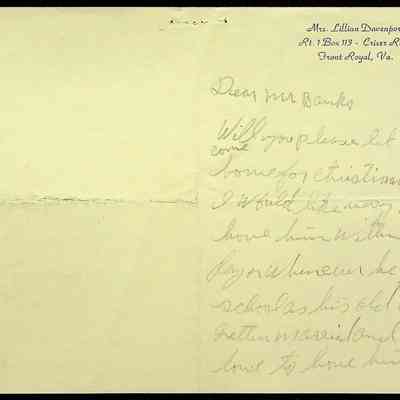 Mrs. Lillian Davenpor
Rt. 1 Box 113 - Criser R
Front Royal, Va.
Dear Mr Banks
Will you please let
come
home for christma
I would like very
have him with
for whenever he
school as his old
getting married and
love to have him